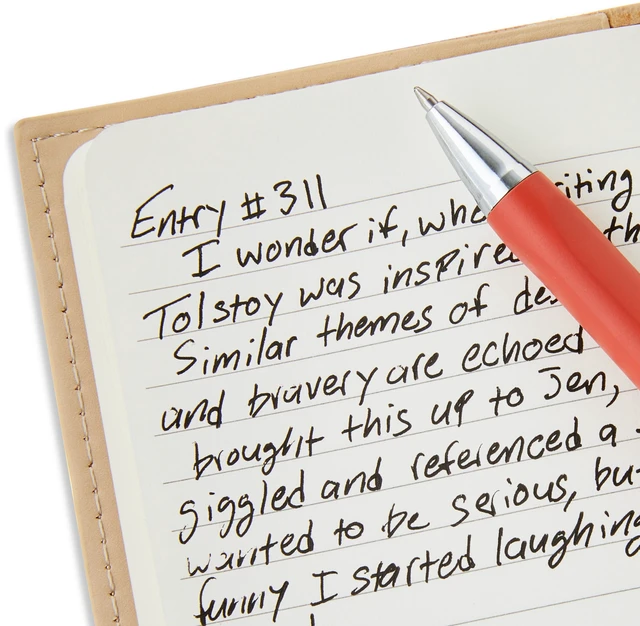 Entry #311
I wonder if, when writing
Tolstoy was inspired th
Similar themes of des
and bravery are echoed
brought this up to Jen,
giggled and referenced a
wanted to be serious, but
funny I started laughing